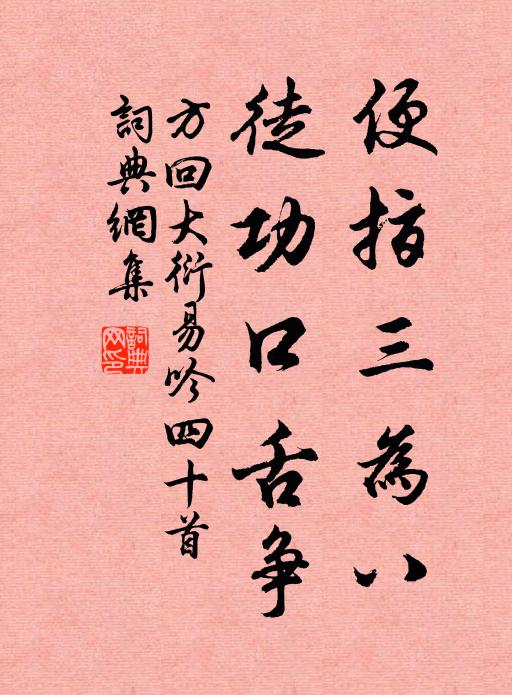 便指三為八
徒功口舌争
方回大衍易吟四十首
詞典網集
詞典网印